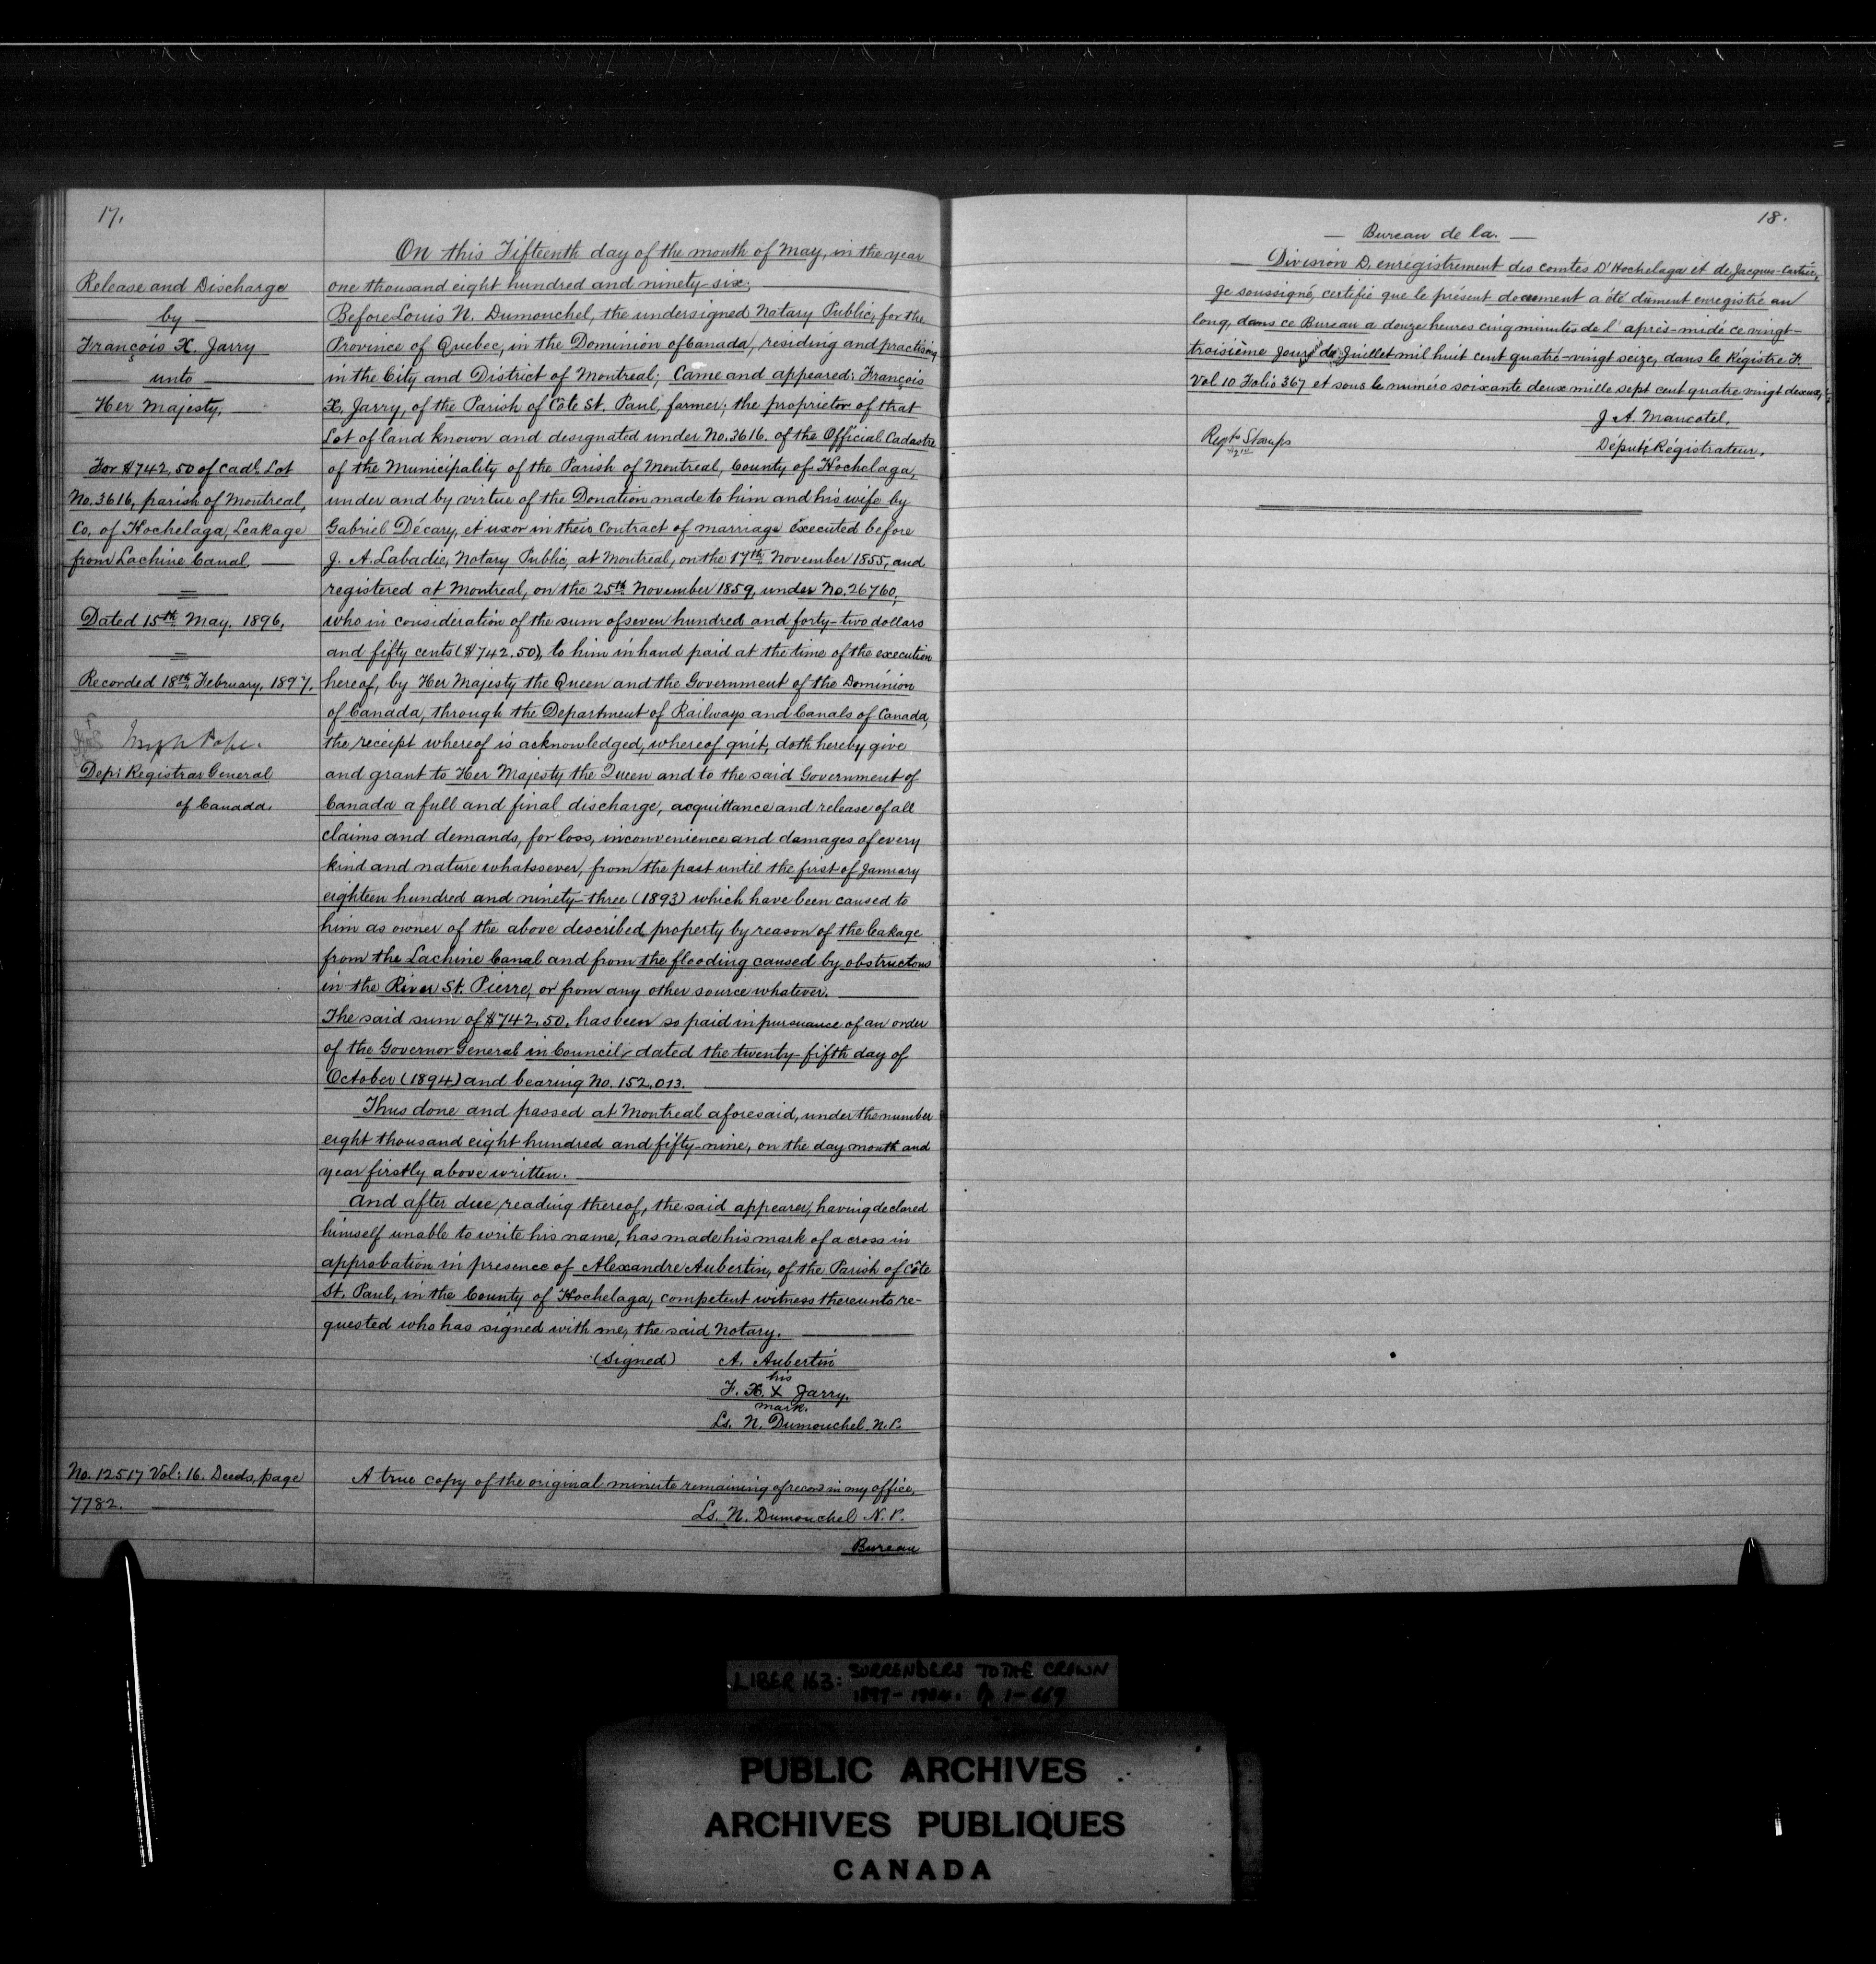 17.
Release and Discharge
by
François X. Jarry
unto
Her Majesty,
For $742.50 of Cadl. Lot
No. 3616, parish of Montreal,
Co. of Hochelaga, Leakage
from Lachine Canal.
Dated 15th May, 1896.
Recorded 18th February, 1897.
Joseph Pope.
Dep: Registrar General
of Canada.
On this Fifteenth day of the month of May, in the year
one thousand eight hundred and ninety-six;
Before Louis N. Dumouchel, the undersigned Notary Public, for the
Province of Quebec, in the Dominion of Canada, residing and practising
in the City and District of Montreal; Came and appeared: François
X. Jarry, of the Parish of Côte St. Paul, farmer; the proprietor of that
Lot of land known and designated under No. 3616. of the Official Cadastre
of the Municipality of the Parish of Montreal, County of Hochelaga,
under and by virtue of the Donation made to him and his wife by
Gabriel Décary, et uxor in their Contract of marriage executed before
J. A. Labadie, Notary Public, at Montreal, on the 17th November 1855, and
registered at Montreal, on the 25th November 1859, under No. 26760,
who in consideration of the sum of seven hundred and forty-two dollars
and fifty cents ($742.50), to him in hand paid at the time of the execution
hereof, by Her Majesty the Queen and the Government of the Dominion
of Canada, through the Department of Railways and Canals of Canada,
the receipt whereof is acknowledged, whereof quit, doth hereby give
and grant to Her Majesty the Queen and to the said Government of
Canada a full and final discharge, acquittance and release of all
claims and demands, for loss, inconvenience and damages of every
kind and nature whatsoever, from the past until the first of January
eighteen hundred and ninety-three (1893) which have been caused to
him as owner of the above described property by reason of the leakage
from the Lachine Canal and from the flooding caused by obstructons
in the River St. Pierre, or from any other source whatever.
The said sum of $742.50. has been so paid in pursuance of an order
of the Governor General in Council, dated the twenty-fifth day of
October (1894) and bearing No. 152,013.
Thus done and passed at Montreal aforesaid, under the number
eight thousand eight hundred and fifty-nine, on the day month and
year firstly above written.
And after due reading thereof, the said appearer, having declared
himself unable to write his name, has made his mark of a cross in
approbation in presence of Alexandre Aubertin, of the Parish of Côte
St. Paul, in the County of Hochelaga, competent witness thereunto re-
quested who has signed with me, the said Notary.
(Signed) A. Aubertin
his
F. X. X Jarry.
mark.
Ls. N. Dumouchel. N.P.
No. 12517 Vol: 16. Deeds, page
7782.
A true copy of the original minute remaining of record in my office,
Ls. N. Dumouchel N. P.
Bureau
18.
Bureau de la.
Division D. enregistrement des comtes D'Hochelaga et de Jacques-Cartier,
Je soussigné, certifie que le présent document a été dûment enregistré au
long, dans ce Bureau a douze heures cinq minutes de l'après-midi ce vingt-
troisième jour de Juillet mil huit cent quatre-vingt seize, dans le Régistre F.
Vol 10 Folio 367 et sous le numéro soixante deux mille sept cent quatre vingt deux
J A. Maucotel,
Député Régistrateur.
Regtn Stamps
LIBER 163: SURRENDERS TO THE CROWN
1897-1904. P 1-669
PUBLIC ARCHIVES
ARCHIVES PUBLIQUES
CANADA